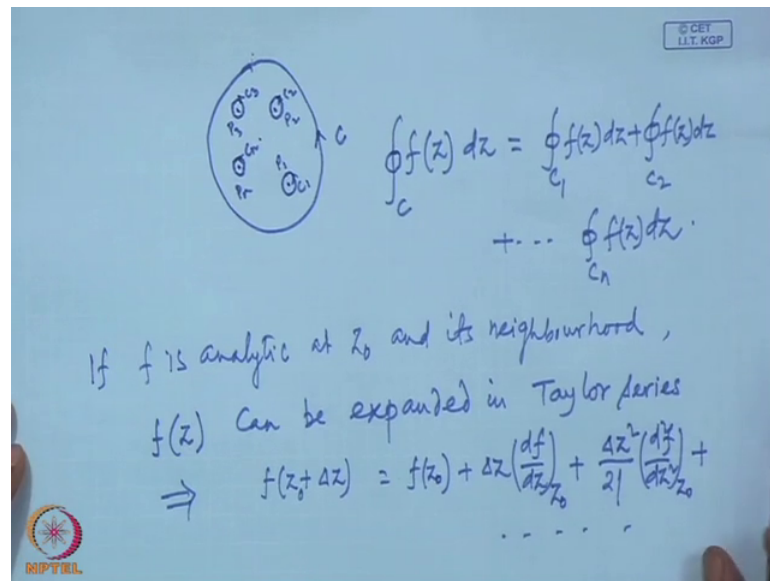 © CET
I.I.T. KGP
C3 C2
P3 P2
C
P1
Pr C1
∮_C f(z) dz = ∮_{C1} f(z) dz + ∮_{C2} f(z) dz
+ ... ∮_{Cn} f(z) dz.
If f is analytic at z₀ and its neighbourhood,
f(z) can be expanded in Taylor series
⇒ f(z₀+Δz) = f(z₀) + Δz (df/dz)_{z₀} + Δz²/2! (d²f/dz²)_{z₀} +
. . . . .
NPTEL